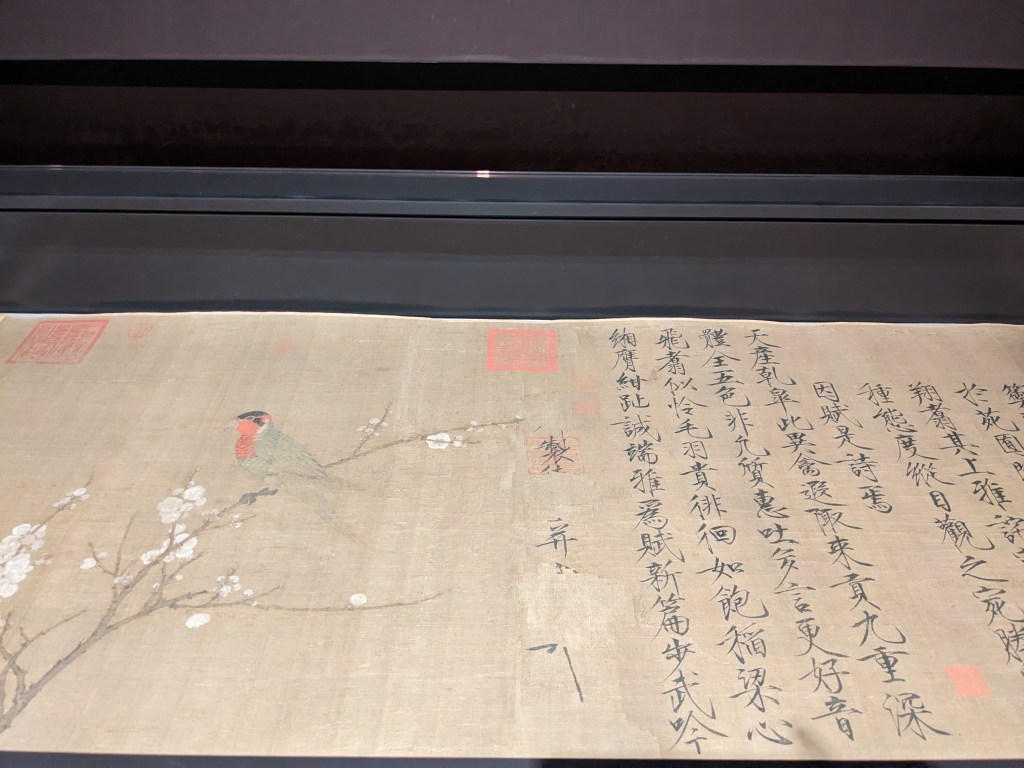 籞
於苑囿
翔翥其上雅詫
種態度縱目觀之宛勝
因賦是詩焉
天產乾皋此異禽遐陬來貢九重深
體全五色非凡質惠吐多言更好音
飛翥似怜毛羽貴徘徊如飽稻粱心
緗膺紺趾誠端雅為賦新篇步武吟
製
并